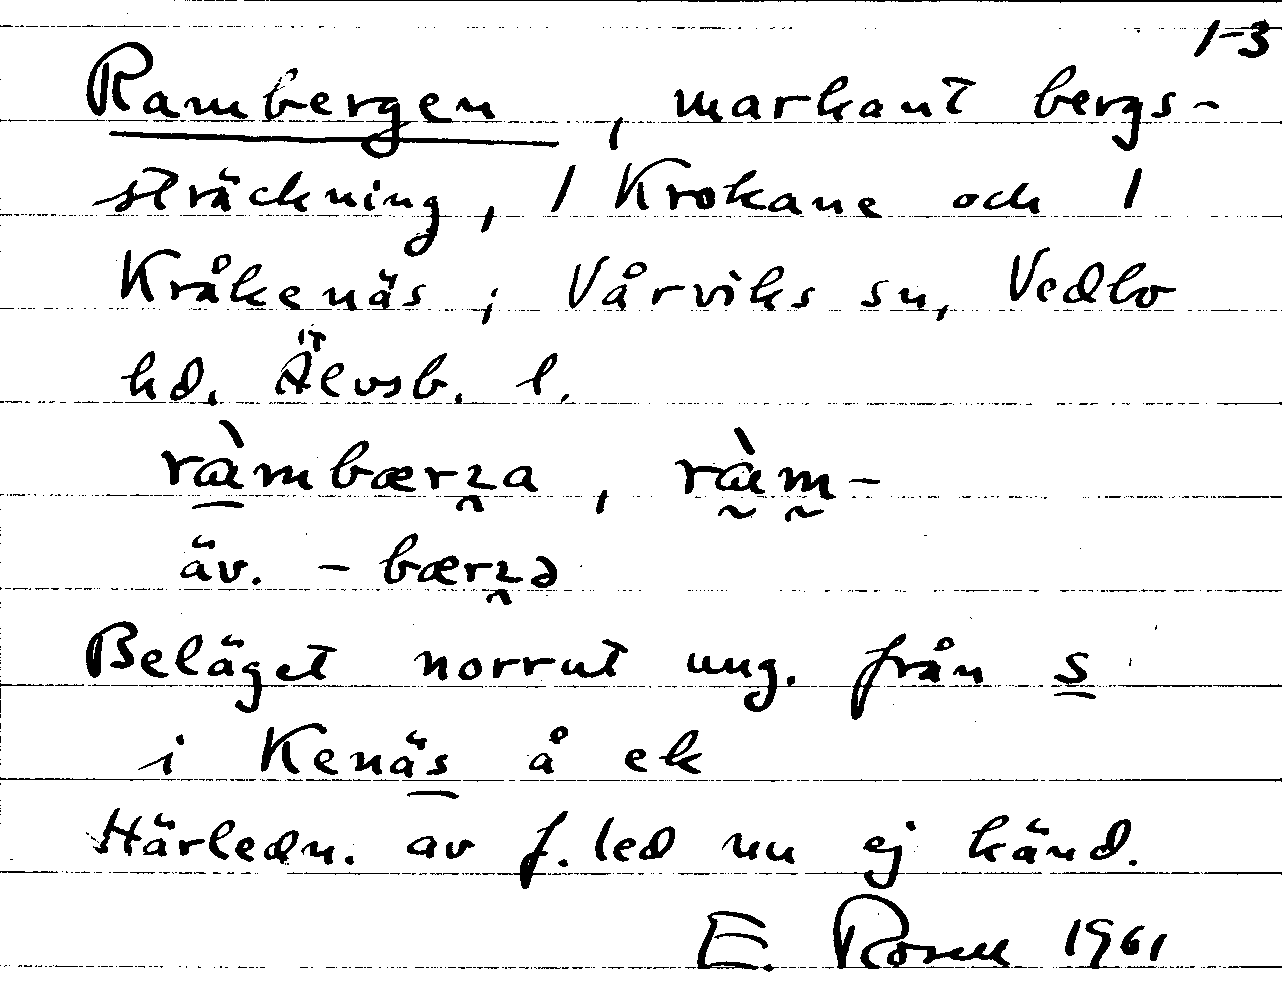 1-3
Rambergen, markant bergs-
sträckning, 1 Krokane och 1
Kråkenäs; Vårviks sn, Vedbo
hd. Älvsb. l.
ràmbærʐa, ràm-
äv. -bærʐə
Beläget norrut ung. från s
i Kenäs å ek
Härledn. av f. led nu ej känd.
E. Rosell 1961